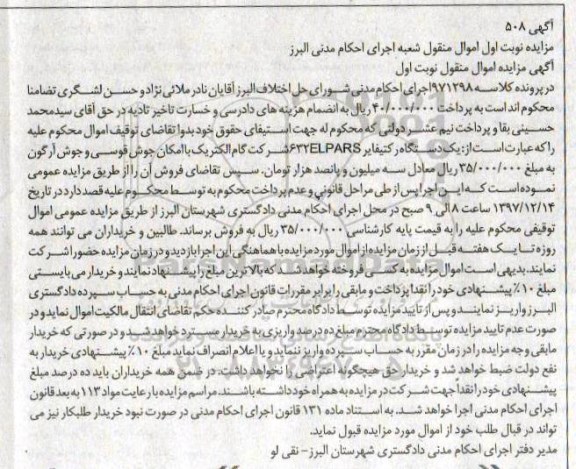 آگهی ۵۰۸
مزایده نوبت اول اموال منقول شعبه اجرای احکام مدنی البرز
آگهی مزایده اموال منقول نوبت اول
در پرونده کلاسه ۹۷۱۲۹۸ اجرای احکام مدنی شورای حل اختلاف البرز آقایان نادر ملائی نژاد و حسن لشگری تضامنا
محکوم اند است به پرداخت ۴۰/۰۰۰/۰۰۰ ریال به انضمام هزینه های دادرسی و خسارت تاخیر تادیه در حق آقای سیدمحمد
حسینی بقا و پرداخت نیم عشر دولتی که محکوم له جهت استیفای حقوق خود بدوا تقاضای توقیف اموال محکوم علیه
را که عبارت است از: یک دستگاه رکتیفایر ۶۳۲ELPARS شرکت گام الکتریک با امکان جوش قوسی و جوش آرگون
به مبلغ ۳۵/۰۰۰/۰۰۰ ریال معادل سه میلیون و پانصد هزار تومان. سپس تقاضای فروش آن را از طریق مزایده عمومی
نموده است که این اجرا پس از طی مراحل قانونی و عدم پرداخت محکوم به توسط محکوم علیه قصد دارد در تاریخ
۱۳۹۷/۱۲/۱۴ ساعت ۸ الی ۹ صبح در محل اجرای احکام مدنی دادگستری شهرستان البرز از طریق مزایده عمومی اموال
توقیفی محکوم علیه را به قیمت پایه کارشناسی ۳۵/۰۰۰/۰۰۰ ریال به فروش برساند. طالبین و خریداران می توانند همه
روزه تا یک هفته قبل از زمان مزایده از اموال مورد مزایده با هماهنگی این اجرا بازدید و در زمان مزایده حضور اشرکت
نمایند. بدیهی است اموال مزایده به کسی فروخته خواهد شد که بالاترین مبلغ را پیشنهاد نمایند و خریدار می بایستی
مبلغ ۱۰٪ پیشنهادی خود را نقدا پرداخت و مابقی را برابر مقررات قانون اجرای احکام مدنی به حساب سپرده دادگستری
البرز واریز نمایند و پس از تایید مزایده توسط دادگاه محترم صادر کننده حکم تقاضای انتقال مالکیت اموال نماید و در
صورت عدم تایید مزایده توسط دادگاه محترم مبلغ ده درصد واریزی به خریدار مسترد خواهد شد و در صورتی که خریدار
مابقی وجه مزایده را در زمان مقرر به حساب سپرده واریز ننماید و یا اعلام انصراف نماید مبلغ ۱۰٪ پیشنهادی خریدار به
نفع دولت ضبط خواهد شد و خریدار حق هیچگونه اعتراضی را نخواهد داشت. در ضمن همه خریداران باید ده درصد مبلغ
پیشنهادی خود را نقداً جهت شرکت در مزایده به همراه خود داشته باشند. مراسم مزایده با رعایت مواد ۱۱۳ به بعد قانون
اجرای احکام مدنی اجرا خواهد شد. به استناد ماده ۱۳۱ قانون اجرای احکام مدنی در صورت نبود خریدار طلبکار نیز می
تواند در قبال طلب خود از اموال مورد مزایده قبول نماید.
مدیر دفتر اجرای احکام مدنی دادگستری شهرستان البرز- نقی لو